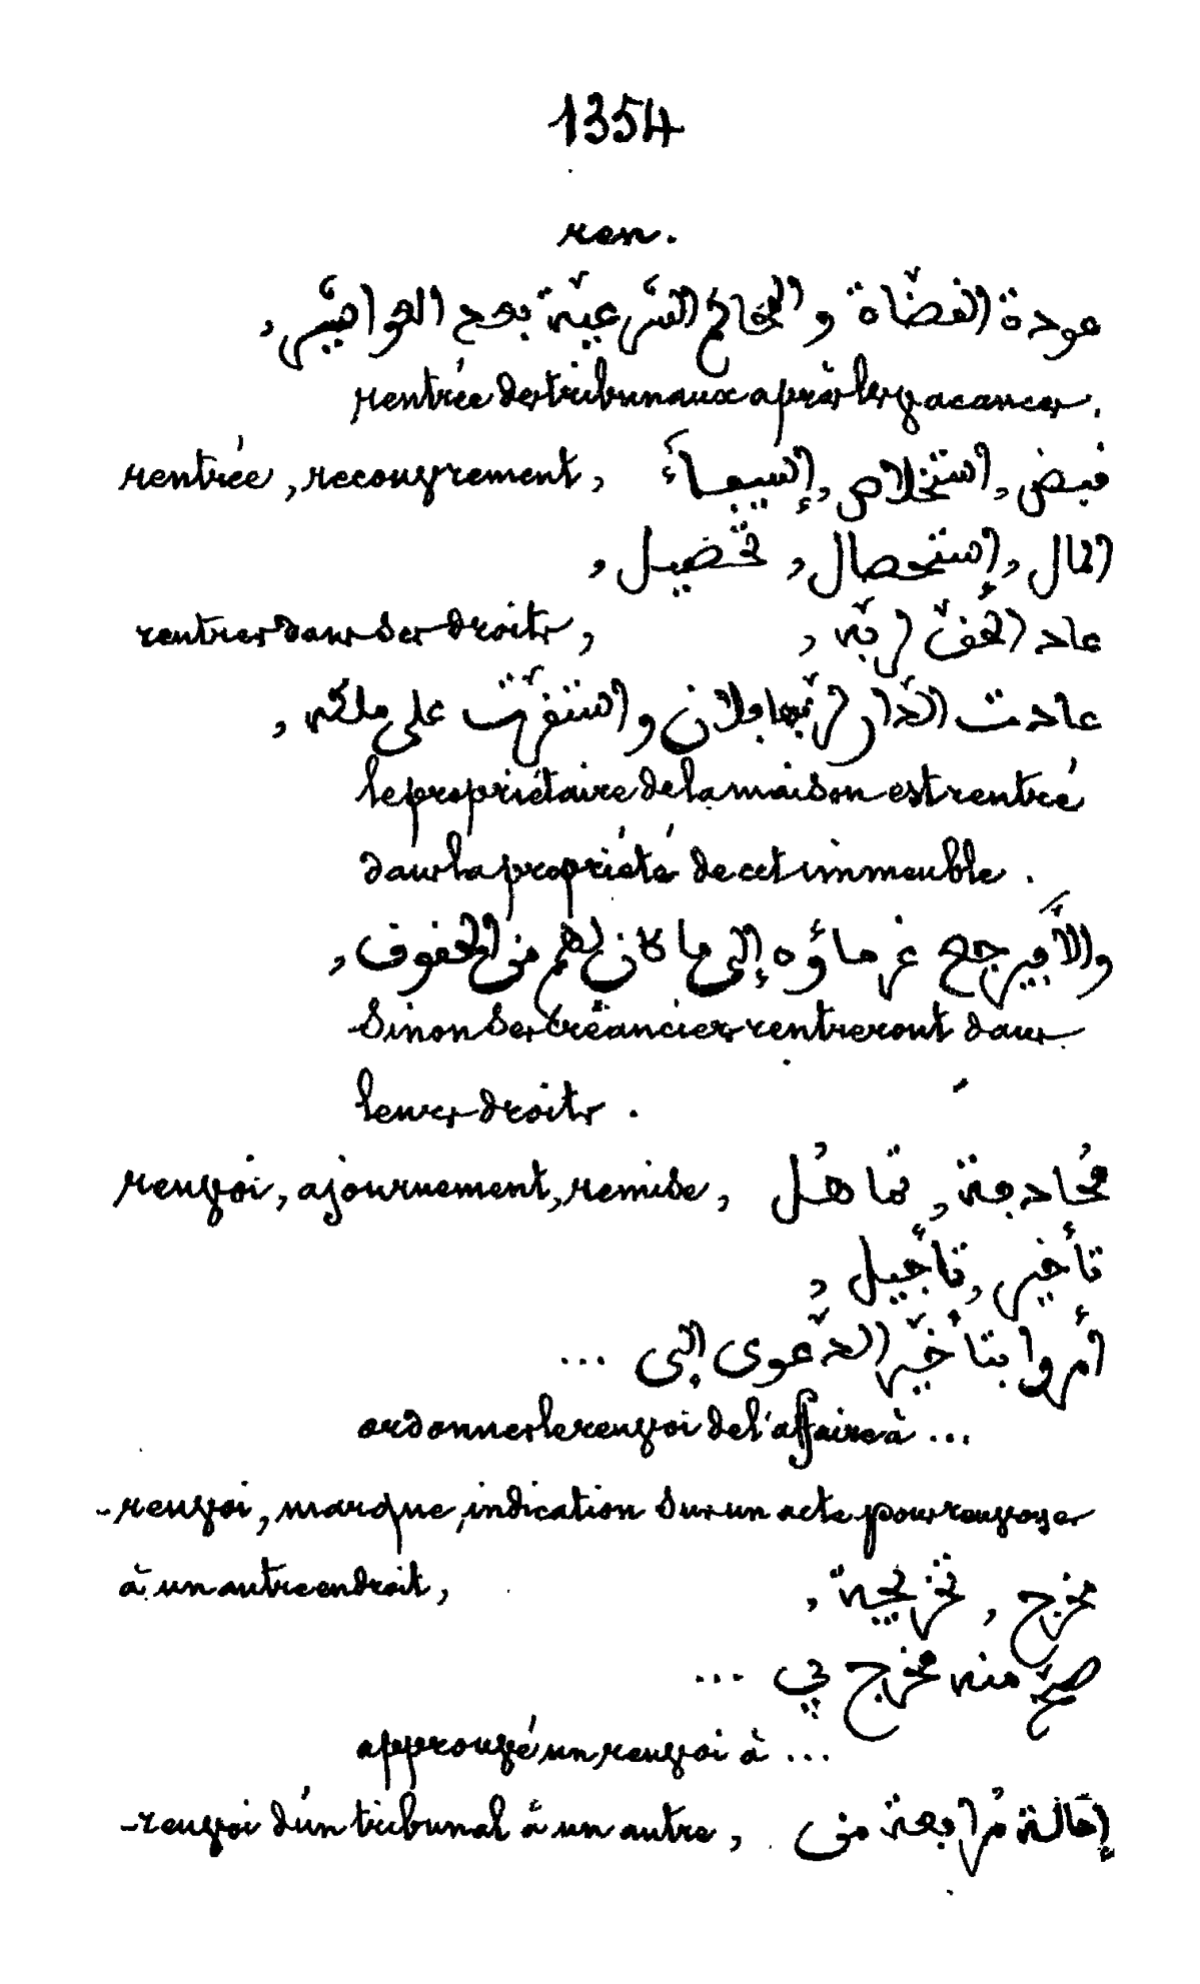 1354
ren.
عودة القضاة و المحاكم الشرعيّة بعد العواشر،
rentrée des tribunaux après les vacances.
rentrée, recouvrement, قبض، استخلاص، إستيفاءُ
المال، إستحصال، تحصيل،
rentrer dans ses droits, عاد الحقّ لربّه،
عادت الدّار لربّها فلان و استقرّت على ملكه،
le propriétaire de la maison est rentré
dans la propriété de cet immeuble.
وإلاَّ فيرجع غرماؤه إلى ما كان لهم من الحقوق،
Sinon ses créanciers rentreront dans
leurs droits.
renvoi, ajournement, remise, مُدافعة، تماهُل
تأخير، تأجيل،
أمروا بتأخير الدّعوى إلى ...
ordonner le renvoi de l'affaire à ...
- renvoi, marque, indication sur un acte pour renvoyer
à un autre endroit, مخرج، تخريجة،
صحّ منه مخرج في ...
approuvé un renvoi à ...
- renvoi d'un tribunal à un autre, إحَالة مُرافعة من